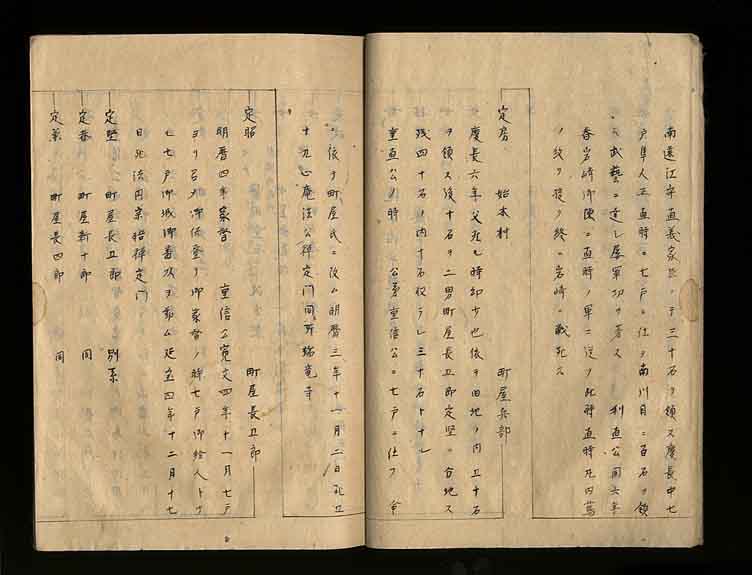 南遠江守直義家臣ニ于三十石ヲ領ス慶長中七
戸隼人正直時ニ七戸ニ仕ヲ南川目ニ百石ヲ領
ス武藝ニ達し屡軍功ヲ著ス 利直公同六年
春岩崎御陳ニ直時ノ軍ニ従フ此時直時
ノ終ニ岩崎ニ戦死ス
定房 始本村 町屋兵部
慶長六年父死ノ時幼少也依ヲ田地ノ内五十石
ヲ領ス後十石ヲ二男町屋長五郎定堅ニ分地ス
残四十石ノ内十石収ラレ三十石トナル
重直公ノ時 公弟重信公ニ七戸ニ仕フ 命
ニ依ヲ町屋氏ニ改ム明暦三年十一月二日死五
十九心庵浄公禅定門同所瑞竜寺
定昭 町屋長五郎
明暦四年家督 重信公寛文四年十一月七戸
ヨリ召ノ御家督ノ時七戸御給人トナ
七七戸御城御番次ヲ勤ム延宝四年十二月十七
日死法円宗禅定門
定堅 町屋長五郎 別系
定春 町屋新十郎 同
町屋長四郎 同